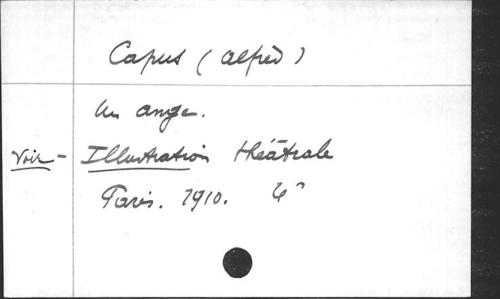 Capus (Alfred)
Un ange.
Voir - Illustration théâtrale
Paris. 1910. 4°